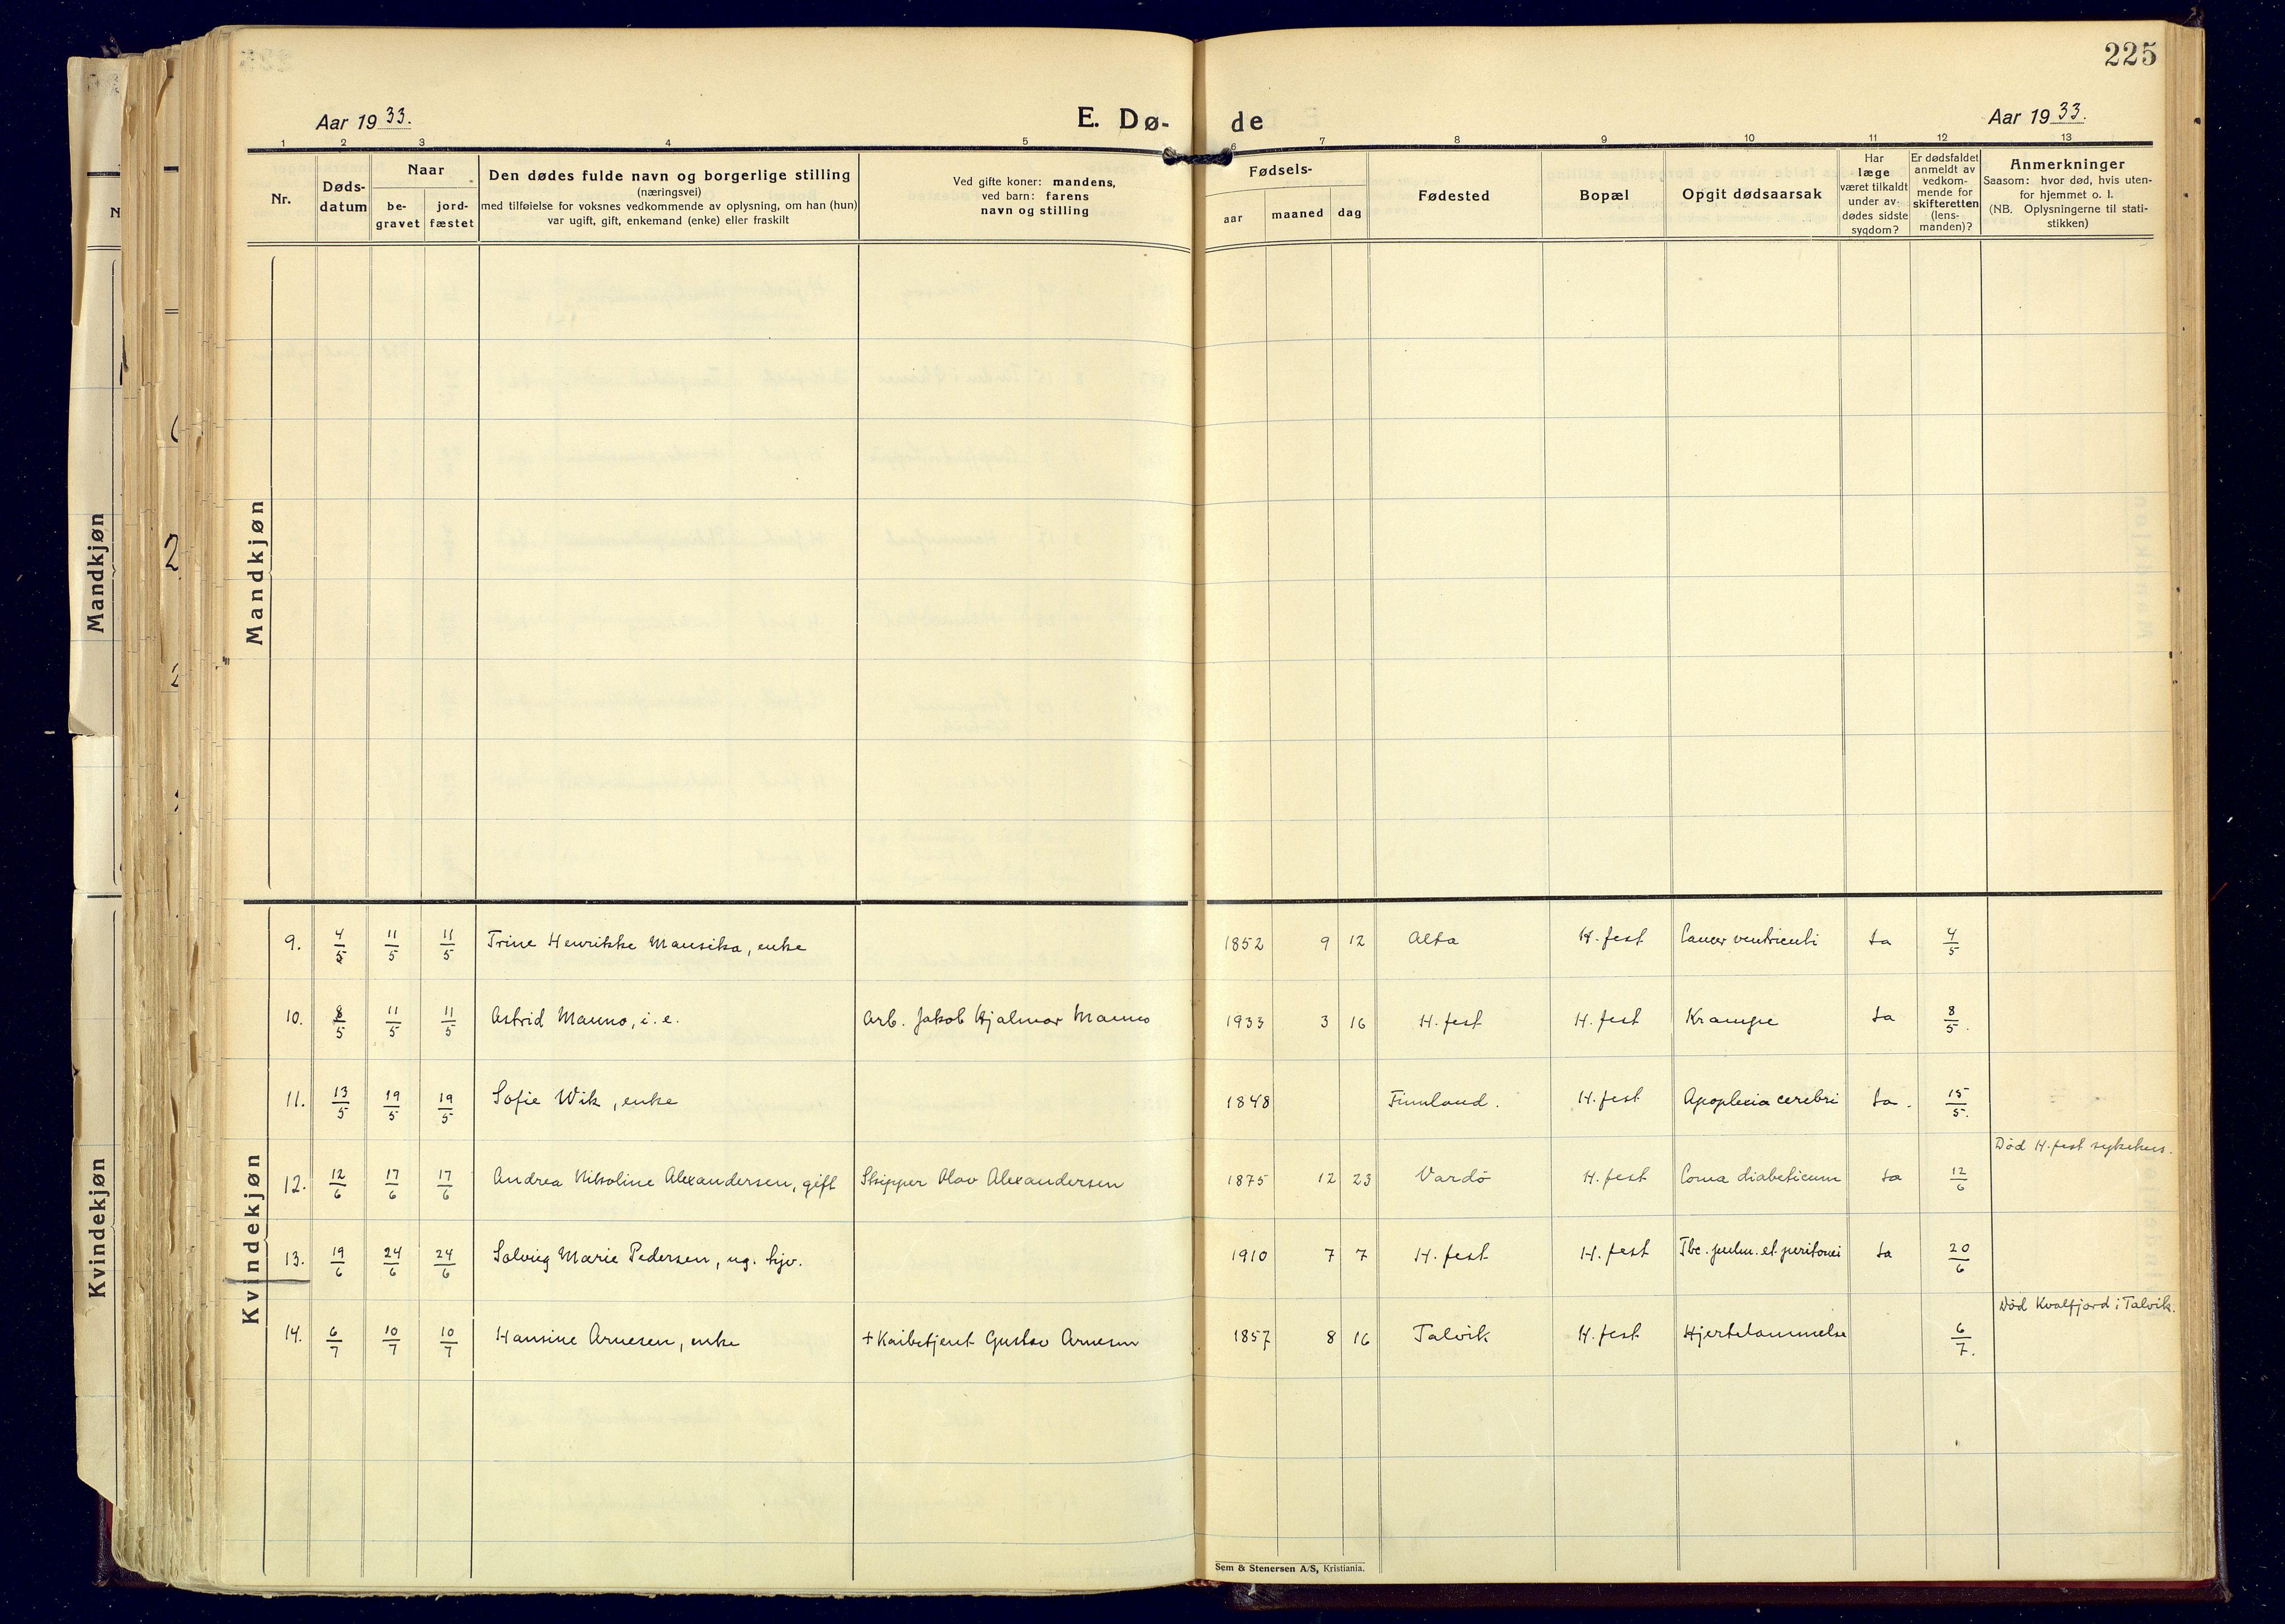 225
Aar 1933.
E. Dø-
de
Aar 1933.
1 2 3 4 5 6 7 8 9 10 11 12 13
Nr.
Døds-
datum
Naar
be-
gravet
jord-
fæstet
Den dødes fulde navn og borgerlige stilling
(næringsvei)
med tilføielse for voksnes vedkommende av oplysning, om han (hun)
var ugift, gift, enkemand (enke) eller fraskilt
Ved gifte koner: mandens,
ved barn: farens
navn og stilling
Fødsels-
aar maaned dag
Fødested
Bopæl
Opgit dødsaarsak
Har
læge
været tilkaldt
under av-
dødes sidste
sygdom?
Er dødsfaldet
anmeldt av
vedkom-
mende for
skifteretten
(lens-
manden)?
Anmerkninger
Saasom: hvor død, hvis uten-
for hjemmet o. l.
(NB. Oplysningerne til stati-
stikken)
Mandkjøn
Mandkjøn
Kvindekjøn
Kvindekjøn
9. 4/5 11/5 11/5 Trine Henrikke Mausika, enke 1852 9 12 Alta H.fest Cancer ventriculi Ja 4/5
10. 8/5 11/5 11/5 Astrid Mauno, i.e. Arb. Jakob Hjalmar Mauno 1933 3 16 H.fest H.fest Krampe Ja 8/5.
11. 13/5 19/5 19/5 Sofie Wik, enke 1848 Finnland. H.fest Apoplexia cerebri Ja. 15/5.
Död H.fest sykehus.
12. 12/6 17/6 17/6 Andrea Nikoline Alexandersen, gift Skipper Olav Alexandersen 1875 12 23 Vardö H.fest Coma diabeticum Ja 12/6
13. 19/6 24/6 24/6 Solveig Marie Pedersen, ug. hjv. 1910 7 7 H.fest H.fest Tbc. pulm. et peritonei Ja 20/6
Död Kvalfjord i Talvik.
14. 6/7 10/7 10/7 Hansine Arnesen, enke + Kaibetjent Gustav Arnesen 1857 8 16 Talvik H.fest Hjertelammelse 6/7.
Sem & Stenersen A/S, Kristiania.